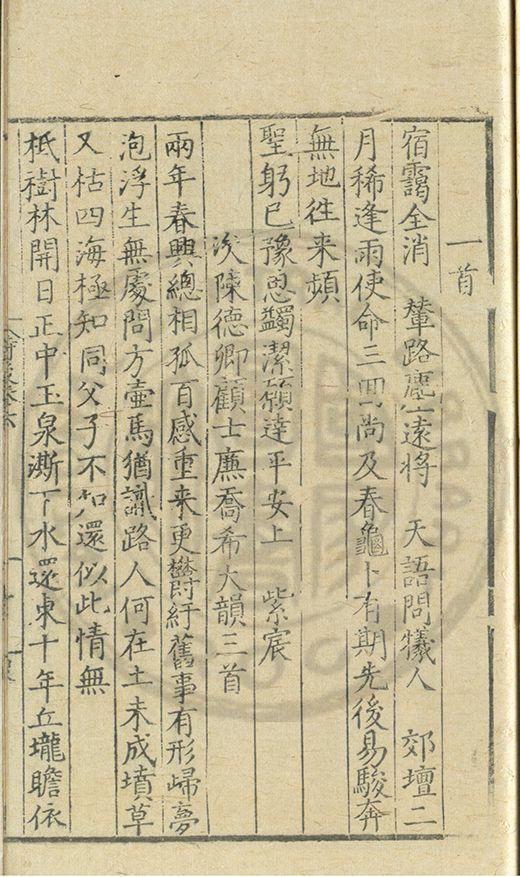 一首
宿靄全消　輦路塵遠將　天語問犧人　郊壇二
月稀逢雨使命三囬尚及春龜卜有期先後易駿奔
無地往來頻
聖躬已豫恩蠲潔願達平安上　紫宸
次陳德卿顧士廉喬希大韻三首
兩年春興總相孤百感重来更欝紆舊事有形歸夢
泡浮生無處問方壺馬猶識路人何在土未成墳草
又枯四海極知同父子不知還似此情無
柢樹林開日正中玉泉澌下水還東十年丘壠瞻依